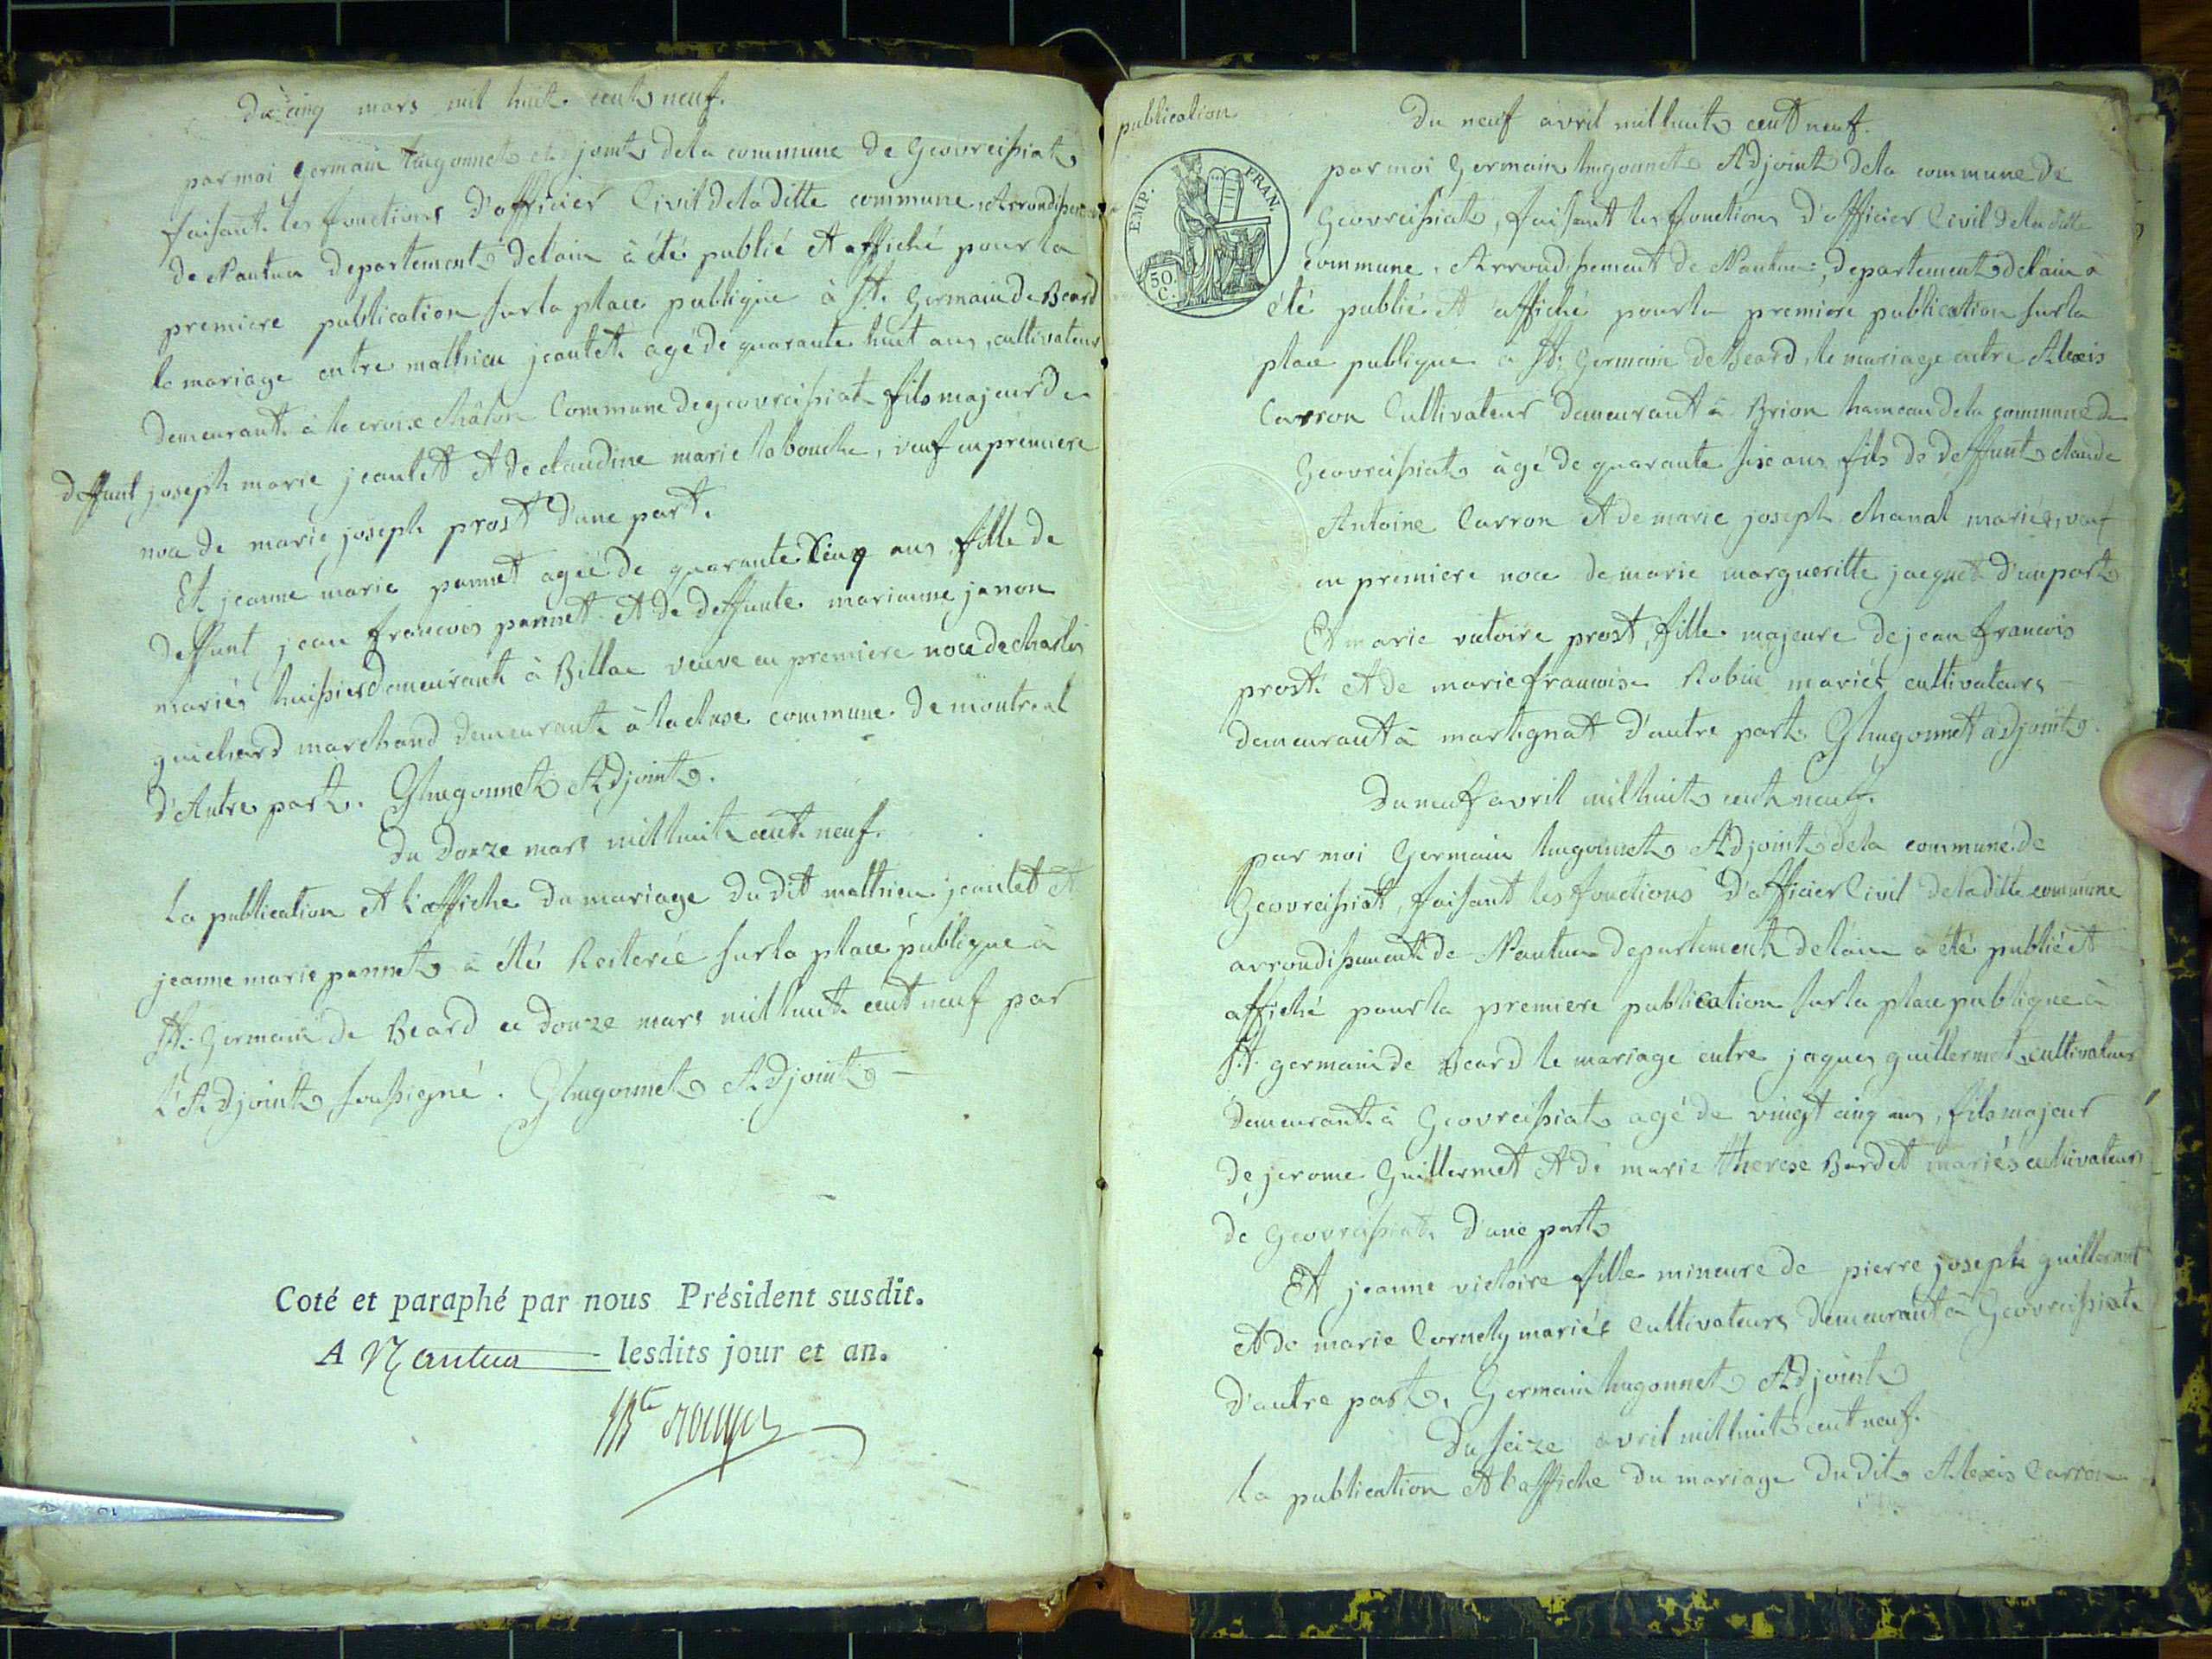 Du cinq mars mil huit cent neuf.
par moi Germain hugonnet adjoint de la commune de Geovreissiat
faisant les fonctions d'officier Civil de la ditte commune Arrondissement
de Nantua departement de lain à été publié et affiché pour la
premiere publication sur la place publique à St. Germain de Beard
le mariage entre mathieu jeantet agé de quarante huit ans, cultivateur
demeurant à la croix châlon Commune de geovreissiat fils majeur de
deffunt joseph marie jeantet et de claudine marie labouche, veuf en premiere
noce de marie joseph prost d'une part.
Et jeanne marie pannet agée de quarante cinq ans fille de
deffunt jean francois pannet et de deffunte marianne janon
mariés huissier demeurant à Billac veuve en premiere noce de charles
guichard marchand demeurant à la cluse commune de montreal
d'Autre part. Ghugonnet Adjoint.
Du Douze mars mil huit cent neuf.
La publication et l'affiche du mariage du dit mathieu jeantet et
jeanne marie pannet à été Reiterée sur la place publique à
St. Germain de Beard ce douze mars mil huit cent neuf par
L'Adjoint soussigné. Ghugonnet Adjoint
Coté et paraphé par nous Président susdit.
A Nantua lesdits jour et an.
publication
Du neuf avril mil huit cent neuf.
EMP. FRAN.
50.
C.
par moi Germain hugonnet Adjoint de la commune de
Geovreissiat, faisant les fonctions d'officier Civil de la ditte
commune, Arrondissement de Nantua, departement de lain à
été publié et affiché pour la premiere publication sur la
place publique à St. Germain de Beard, le mariage entre Alexis
Carron Cultivateur demeurant à Brion hameau de la commune de
Geovreissiat agé de quarante six ans fils de deffunt claude
Antoine Carron et de marie joseph chanal mariés, veuf
en premiere noce de marie margueritte jacquet d'un part
Et marie victoire prost, fille majeure de jean francois
prost et de marie francoise Robin mariés cultivateurs
demeurant à martignat d'autre part. Ghugonnet adjoint.
Du neuf avril mil huit cent neuf.
par moi Germain hugonnet Adjoint de la commune de
Geovreissiat, faisant les fonctions d'officier Civil de la ditte commune
arrondissement de Nantua departement de lain à été publié et
affiché pour la premiere publication sur la place publique à
St. germain de Beard le mariage entre jaques guillermet cultivateur
demeurant à Geovreissiat agé de vingt cinq ans, fils majeur
de jerome Guillermet et de marie therese Bardet mariés cultivateurs
de Geovreissiat d'une part
Et jeanne victoire fille mineure de pierre joseph guillermet
et de marie Cornely mariés cultivateurs demeurant à Geovreissiat
d'autre part. Germain hugonnet Adjoint
Du seize avril mil huit cent neuf.
La publication et l'affiche du mariage du dit Alexis Carron